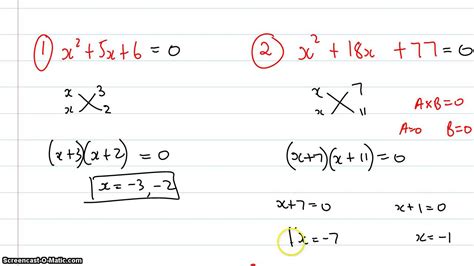 1) x² + 5x + 6 = 0
x 3
x 2
(x+3)(x+2) = 0
x = -3, -2
2 x² + 18x + 77 = 0
x 7
x 11
A×B=0
A=0 B=0
(x+7)(x+11) = 0
x+7=0 x+1=0
x=-7 x=-1
Screencast-O-Matic.com